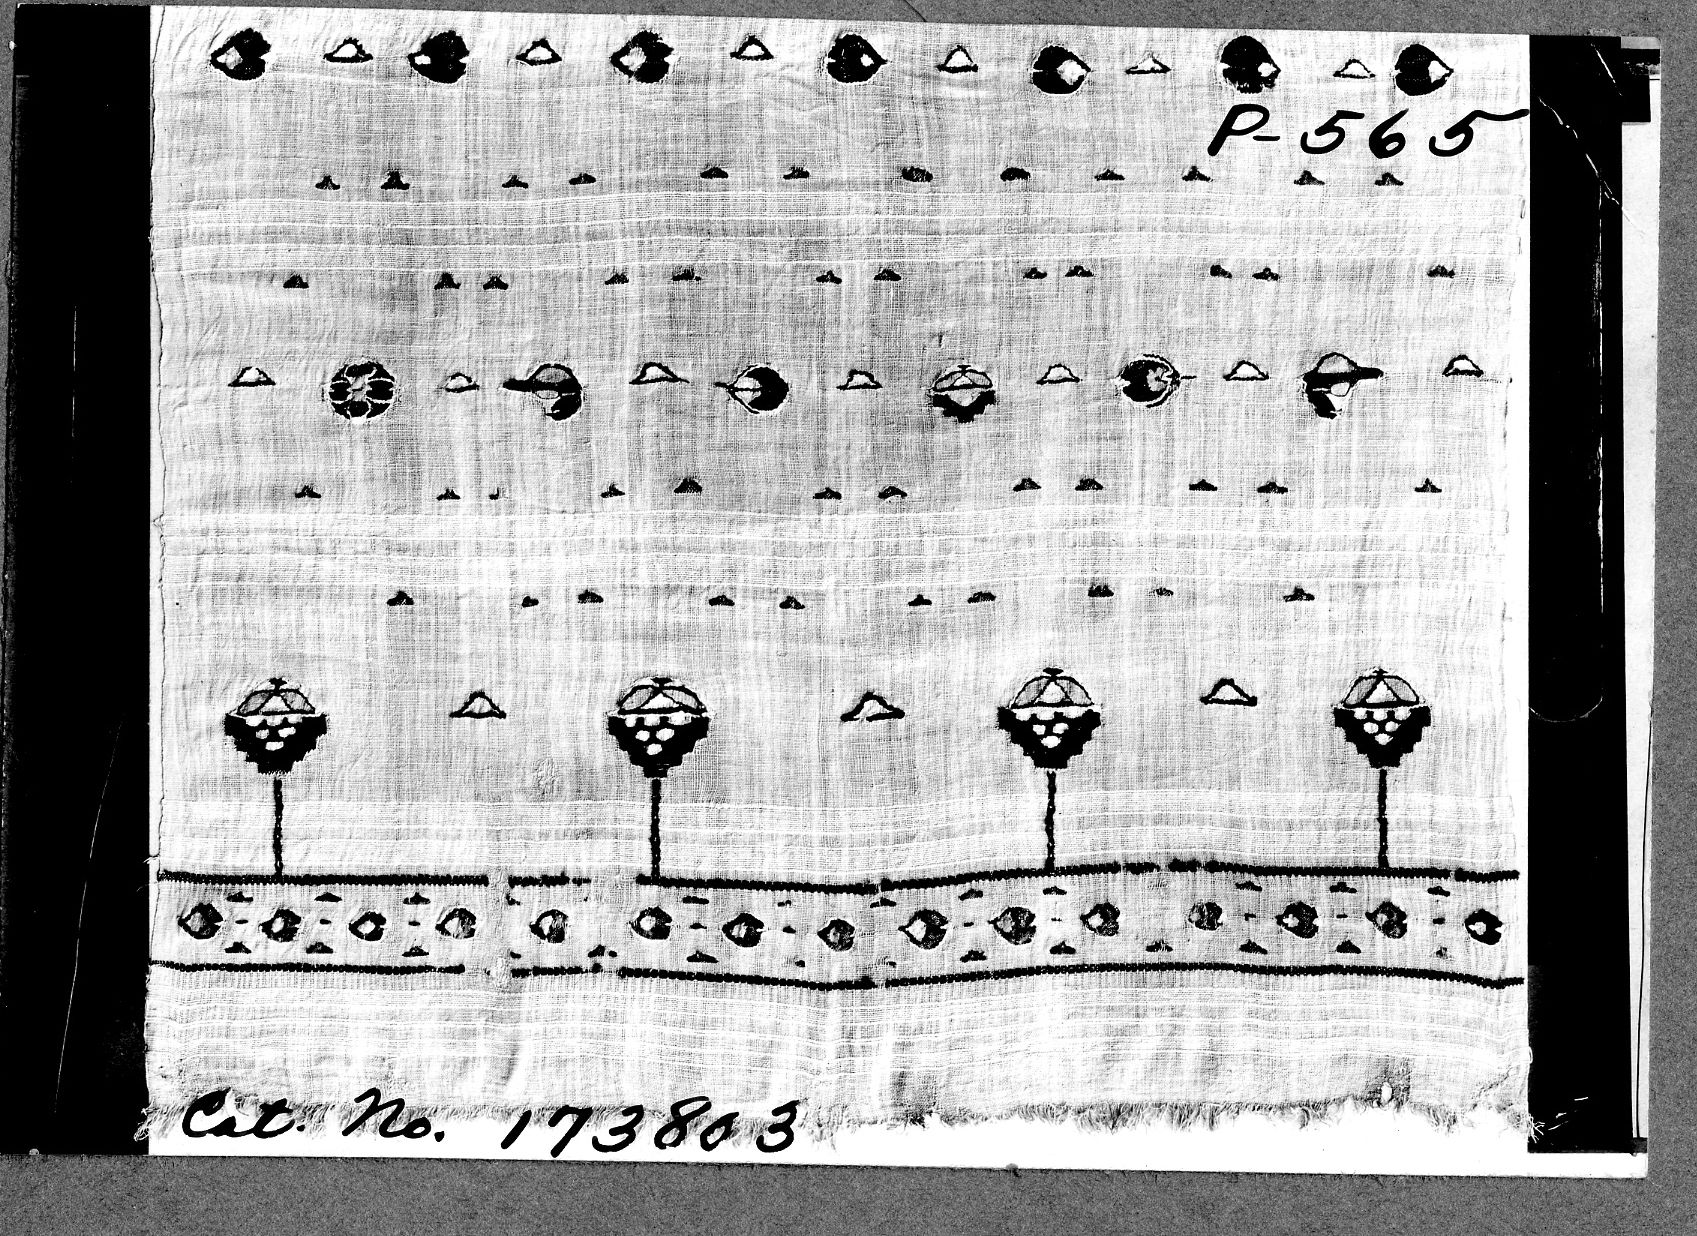 P-565
Cat. No. 173803